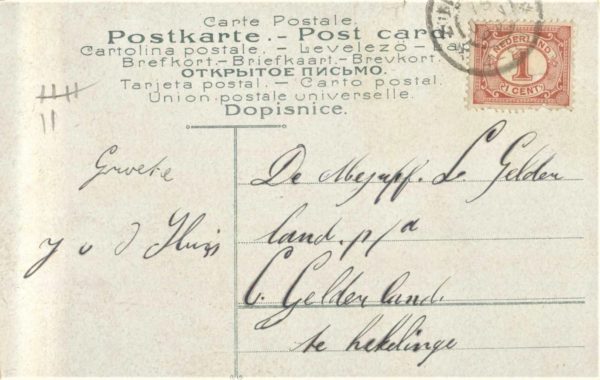 Carte Postale.
Postkarte.- Post card.
Cartolina postale. - Levelező-
Brefkort.-Briefkaart.-Brevkort.
ОТКРЫТОЕ ПИСЬМО.
Tarjeta postal. - Carto postal.
Union postale universelle.
Dopisnice.
NEDERLAND
1
(1 CENT)
Groete
J v d Thuis
De Mejuff. L. Gelder
land. p/a
C. Gelderland.
te hekelinge